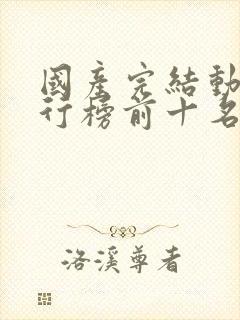 國產完結動
行榜前十名
洛溪尊者